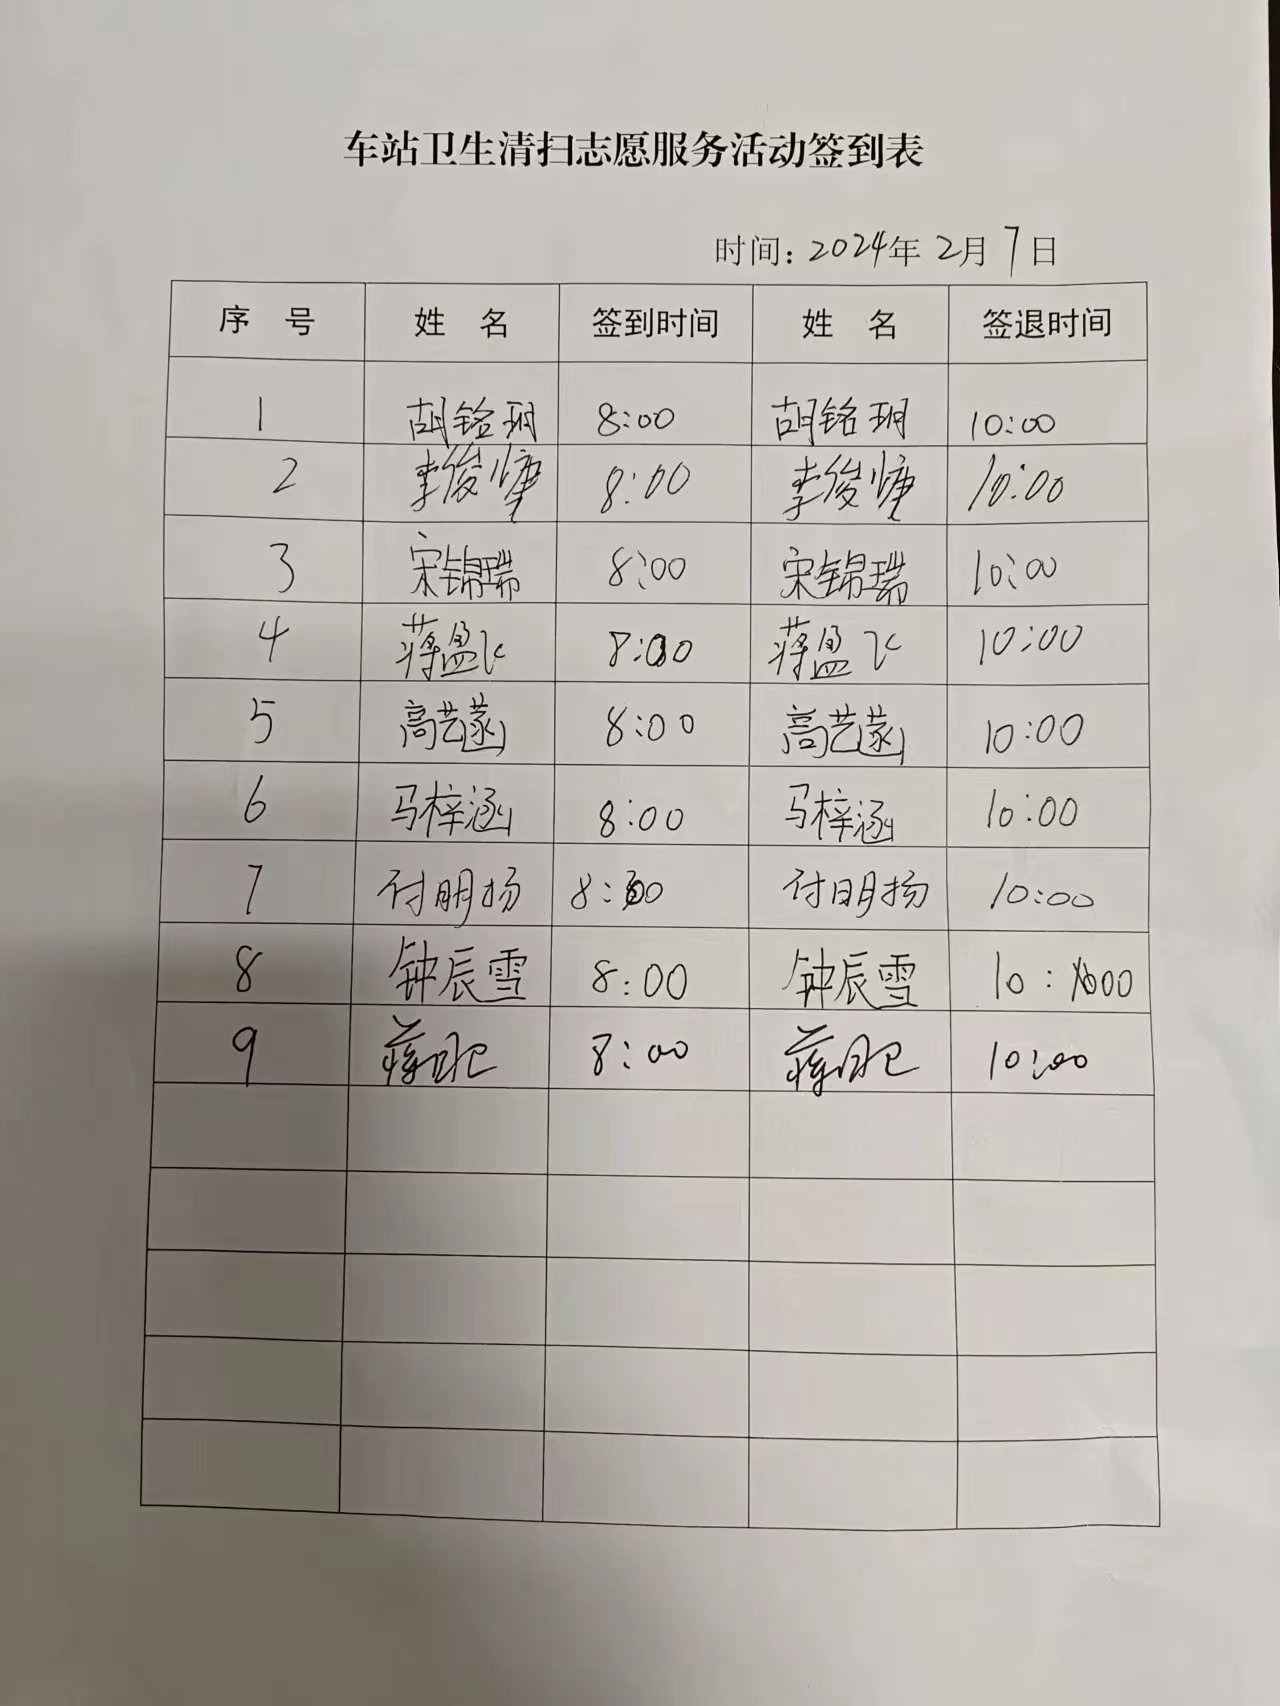 车站卫生清扫志愿服务活动签到表
时间：2024年 2月 7日
序 号 姓 名 签到时间 姓 名 签退时间
1 胡铭玥 8:00 胡铭玥 10:00
2 李俊慷 8:00 李俊慷 10:00
3 宋锦瑞 8:00 宋锦瑞 10:00
4 蒋盈飞 8:00 蒋盈飞 10:00
5 高艺菡 8:00 高艺菡 10:00
6 马梓涵 8:00 马梓涵 10:00
7 付明扬 8:00 付明扬 10:00
8 钟辰雪 8:00 钟辰雪 10:00
9 8:00 10:00